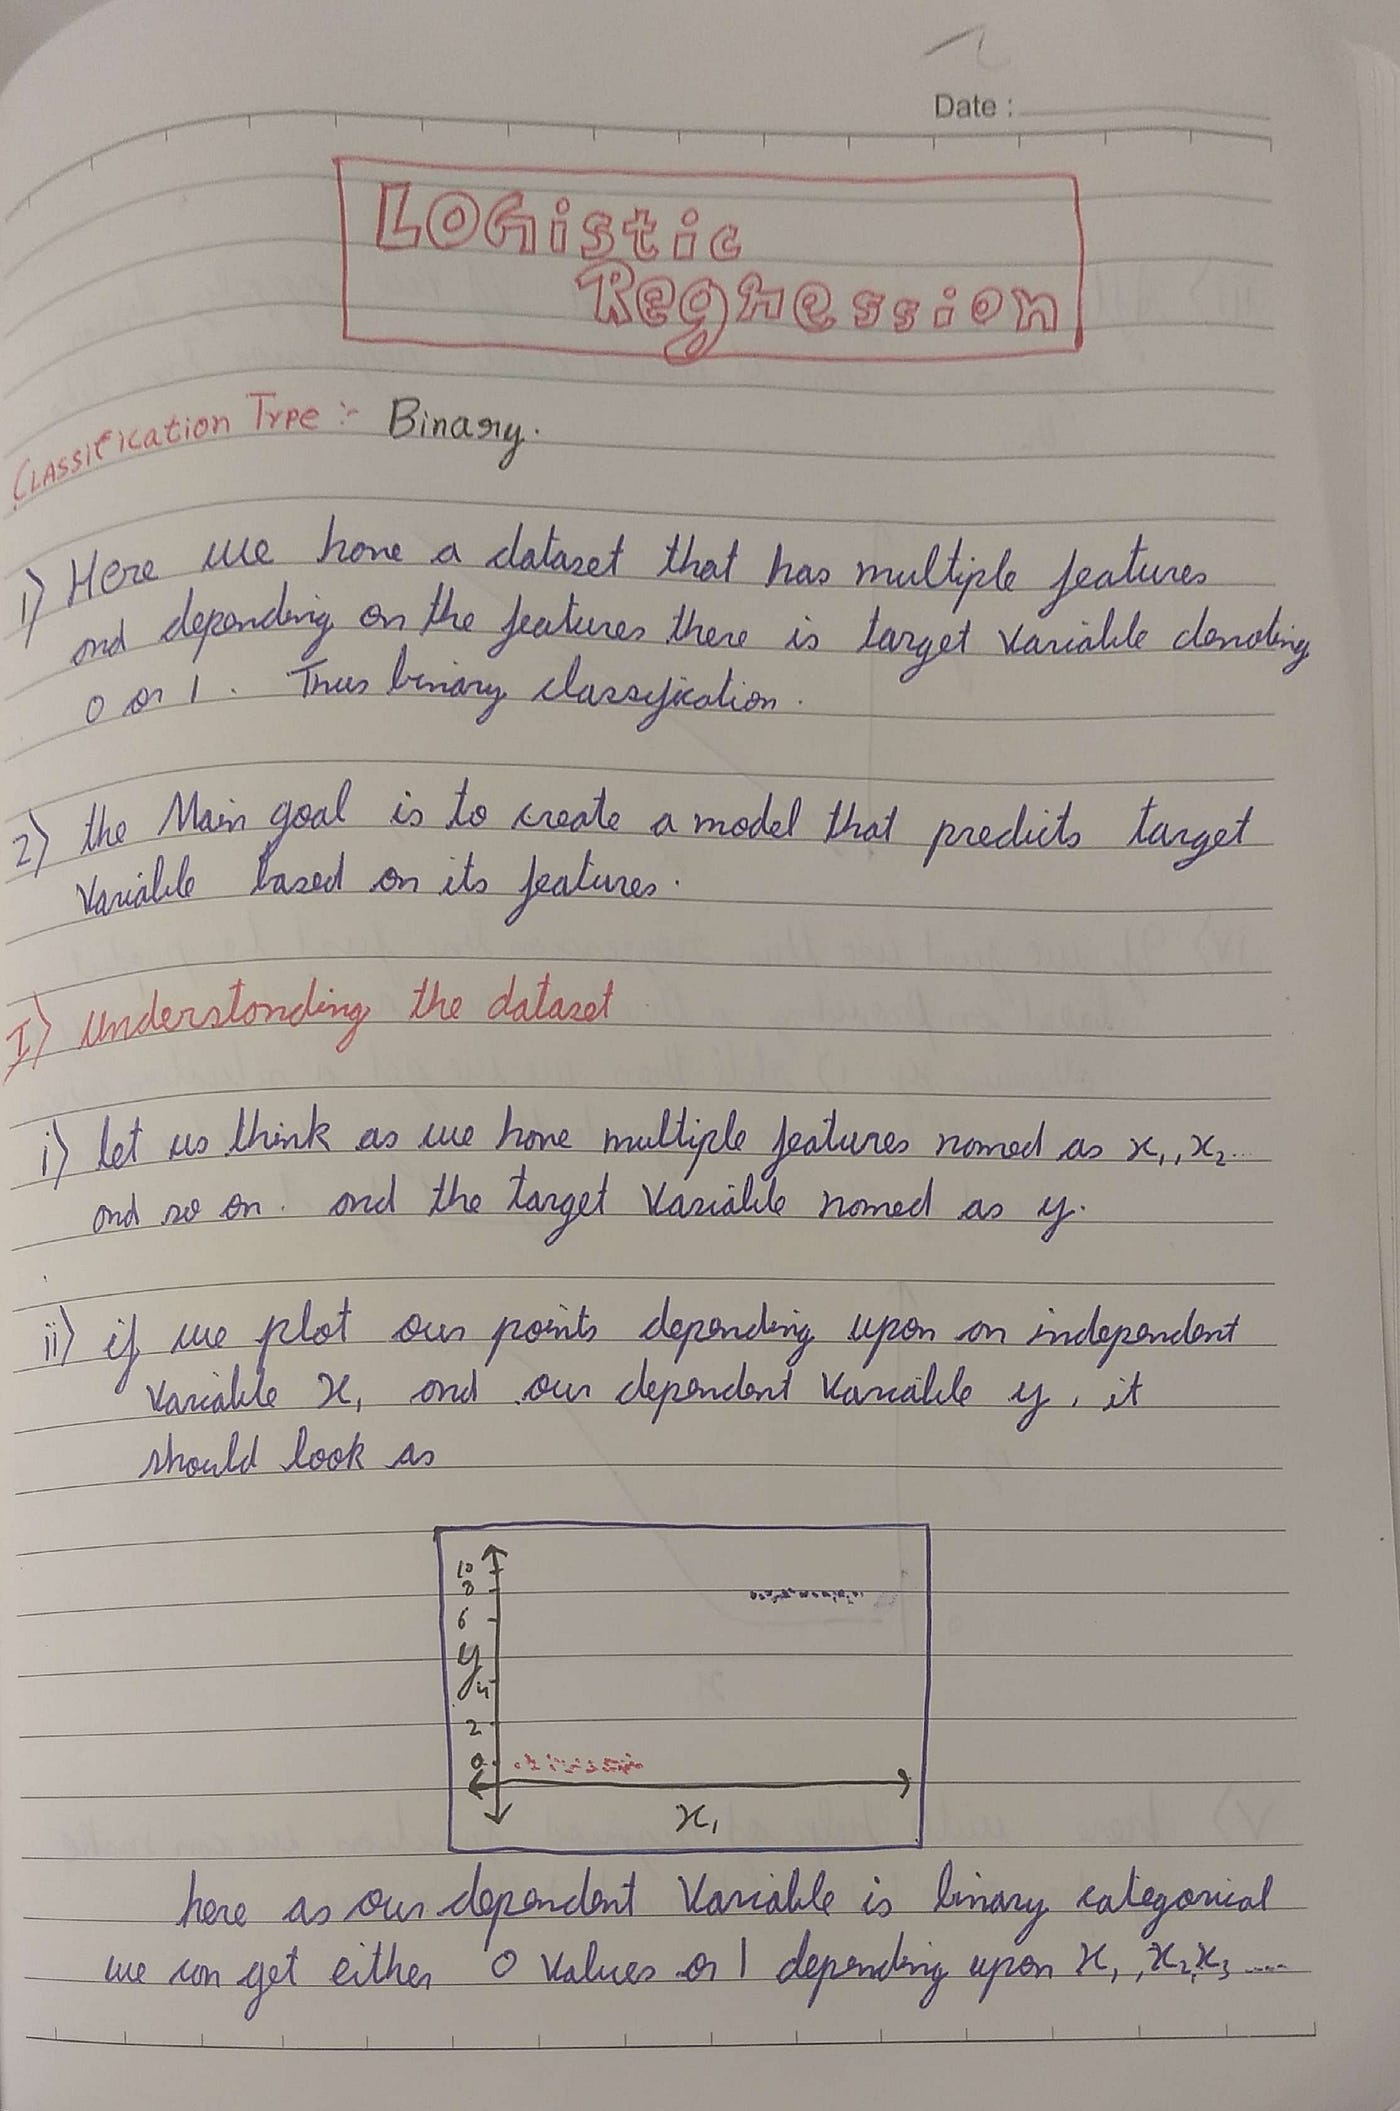 Date :
LOGistic
Regression
CLASSIFICATION TYPE :- Binary.
1) Here we have a dataset that has multiple features
and depending on the features there is target variable denoting
0 or 1. Thus binary classification.
2) the Main goal is to create a model that predicts target
variable based on its features.
I) Understanding the dataset
i) let us think as we have multiple features named as x₁, x₂...
and so on. and the target variable named as y.
ii) if we plot our points depending upon an independent
variable x₁ and our dependent variable y, it
should look as
10
8
6
y
4
2
0
x₁
here as our dependent variable is binary categorical
we can get either 0 values or 1 depending upon x₁, x₂, x₃ ....